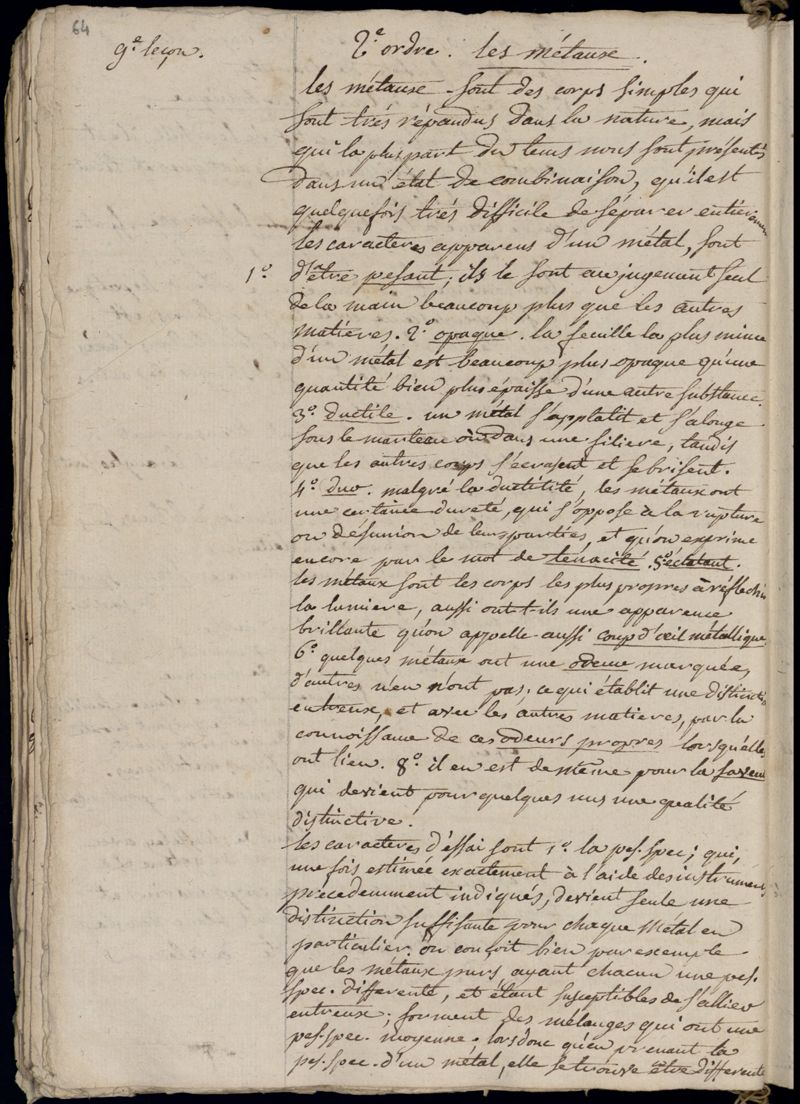 64
9.e leçon.
2.e ordre. les métaux.
les métaux sont des corps simples qui
sont trés répandus dans la nature, mais
qui la plus part du tems nous sont présentés
dans un état de combinaison, qu'il est
quelquefois trés difficile de séparer entièrement
les caracteres apparens d'un métal, sont
1.o d'être pesant; ils le sont au jugement seul
de la main beaucoup plus que les autres
matières. 2.o opaque. la feuille la plus mince
d'un métal est beaucoup plus opaque qu'une
quantité bien plus épaisse d'une autre substance.
3.o ductile. un métal s'applatit et s'alonge
sous le marteau ou dans une filiere, tandis
que les autres corps s'écrasent et se brisent.
4.o dur. malgré la ductilité, les métaux ont
une certaine dureté, qui s'oppose à la rupture
ou désunion de leurs parties, et qu'on exprime
encore par le mot de ténacité. 5.o éclatant.
les métaux sont les corps les plus propres à réflechir
la lumiere, aussi ont-t-ils une apparence
brillante qu'on appelle aussi coup d'œil métallique
6.o quelques métaux ont une odeur marquée,
d'autres n'en n'ont pas, ce qui établit une distinction
entreux, et avec les autres matieres, par la
connoissance de ces odeurs propres lorsqu'elles
ont lieu. 8.o il en est de même pour la saveur
qui devient pour quelques uns une qualité
distinctive.
les caracteres d'essai sont 1.o la pes. spec; qui,
une fois estimée exactement à l'aide des instrumens
précedemment indiqués, devient seule une
distinction suffisante pour chaque métal en
particulier. on conçoit bien par exemple
que les métaux purs ayant chacun une pes.
spec. differente, et étant susceptibles de s'allier
entreux; forment des mélanges qui ont une
pes. spec. moyenne. lors donc qu'en prenant la
pes. spec. d'un métal, elle se trouve être différente